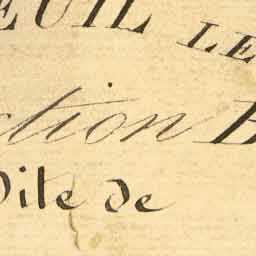 EUIL LE
ction B
Dite de